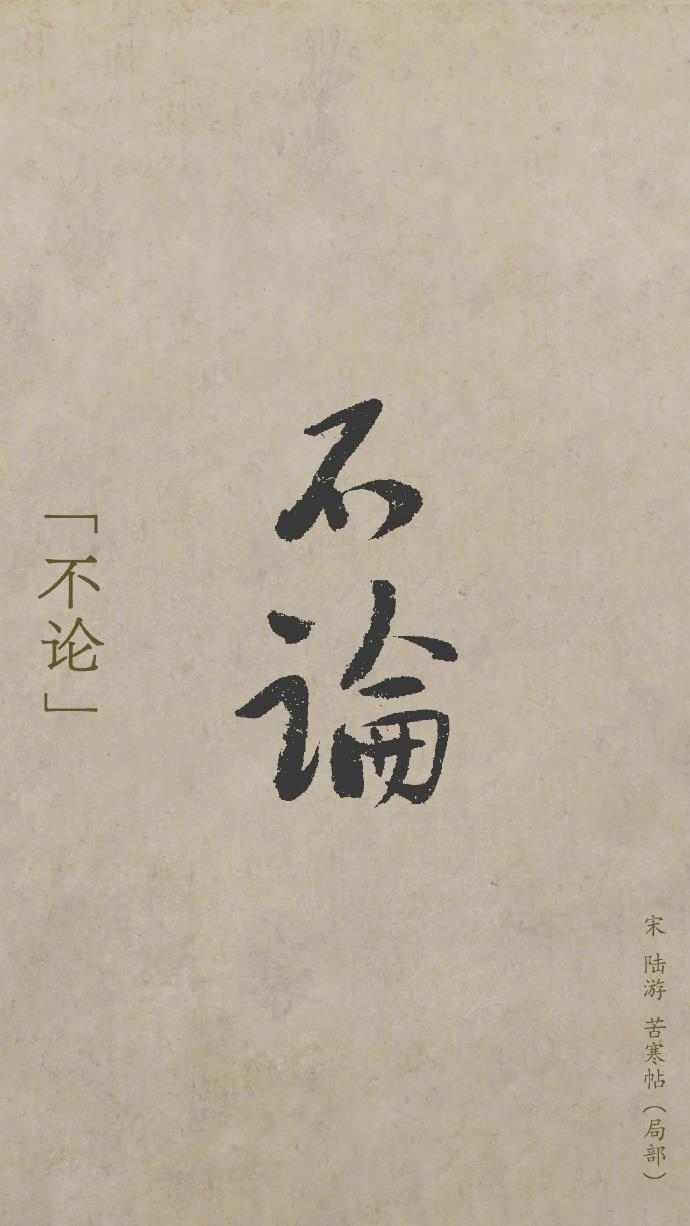 不論
「不论」
宋 陆游 苦寒帖（局部）